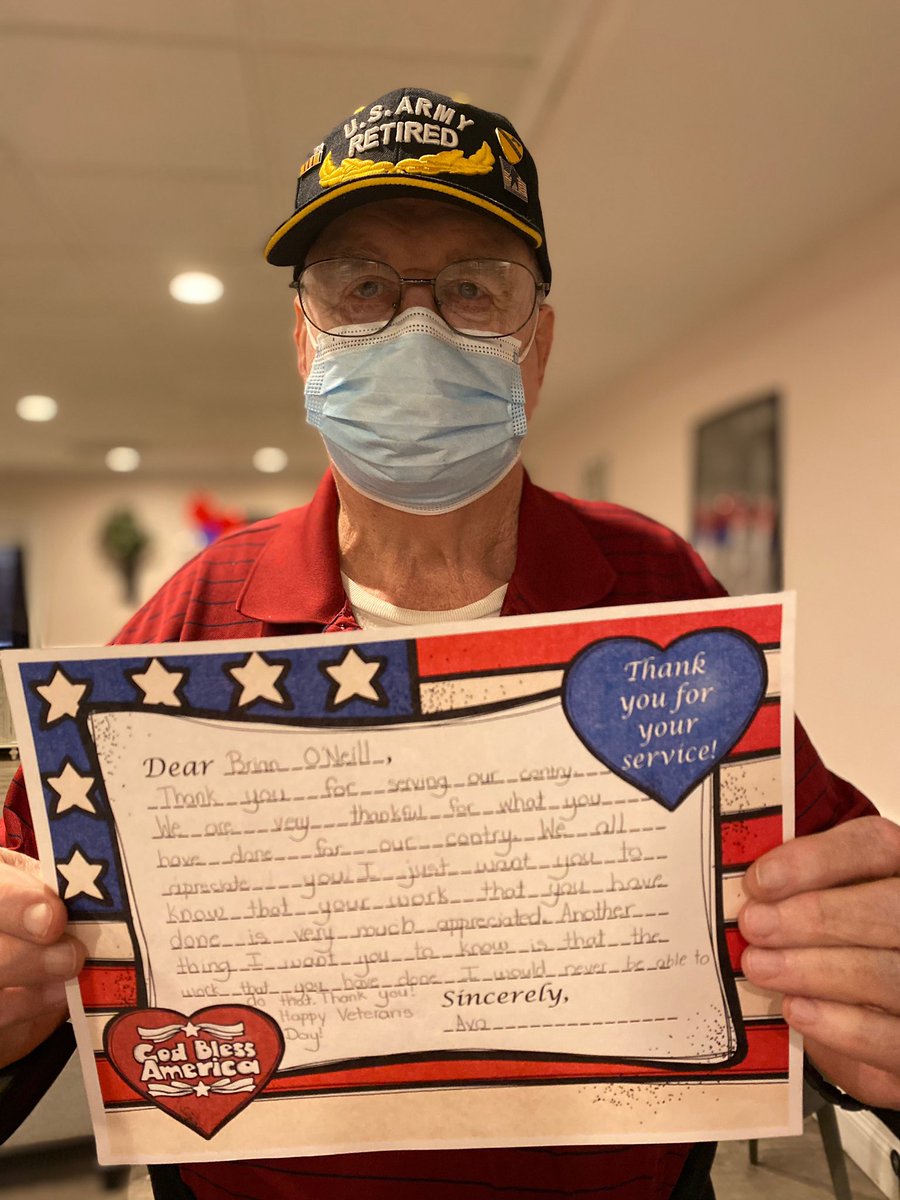 U.S. ARMY
RETIRED
Thank
you for
your
service!
Dear Brian O'Neill,
Thank you for serving our contry.
We are very thankful for what you
have done for our contry. We all
apreciate you! I just want you to
know that your work that you have
done is very much appreciated. Another
thing I want you to know is that the
work that you have done I would never be able to
do that. Thank you!
Happy Veterans
Day!
Sincerely,
Ava
God Bless
America